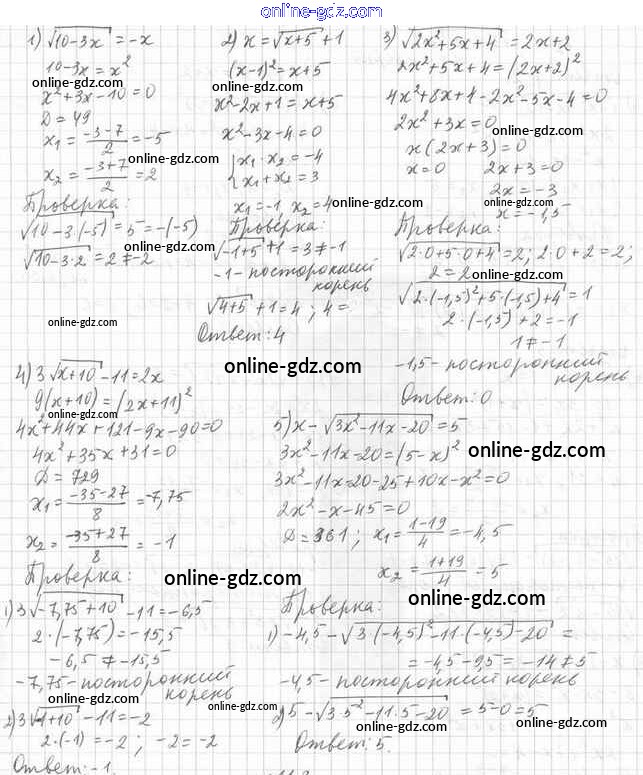 online-gdz.com
1) √10-3x = -x
10-3x = x²
online-gdz.com
x²+3x-10=0
D = 49
x₁ = (-3-7)/2 = -5
online-gdz.com
x₂ = (-3+7)/2 = 2
Проверка:
√10-3·(-5) = 5 = -(-5)
online-gdz.com
√10-3·2 = 2 ≠ -2
2) x = √x+5 + 1
(x-1)² = x+5
online-gdz.com
x²-2x+1 = x+5
x²-3x-4=0
x₁·x₂ = -4
x₁+x₂ = 3
x₁ = -1 x₂ = 4
online-gdz.com
Проверка:
√-1+5 + 1 = 3 ≠ -1
-1 - посторонний
корень
√4+5 + 1 = 4 ; 4 =
Ответ: 4
3) √2x²+5x+4 = 2x+2
2x²+5x+4 = (2x+2)²
4x²+8x+4-2x²-5x-4=0
2x²+3x=0
online-gdz.com
x(2x+3)=0
x=0 2x+3=0
2x = -3
online-gdz.com
x = -1,5
Проверка:
√2·0+5·0+4 = 2; 2·0+2=2;
2=2
online-gdz.com
√2·(-1,5)²+5·(-1,5)+4 = 1
2·(-1,5)+2 = -1
1 ≠ -1
-1,5 - посторонний
корень
Ответ: 0
online-gdz.com
online-gdz.com
4) 3√x+10 - 11 = 2x
9(x+10) = (2x+11)²
online-gdz.com
4x²+44x+121-9x-90=0
4x²+35x+31=0
D = 729
x₁ = (-35-27)/8 = -7,75
x₂ = (-35+27)/8 = -1
Проверка:
online-gdz.com
1) 3√-7,75+10 - 11 = -6,5
2·(-7,75) = -15,5
-6,5 ≠ -15,5
-7,75 - посторонний
корень
online-gdz.com
2) 3√-1+10 - 11 = -2
2·(-1) = -2 ; -2 = -2
Ответ: -1
5) x - √3x²-11x-20 = 5
3x²-11x-20 = (5-x)²
online-gdz.com
3x²-11x-20-25+10x-x²=0
2x²-x-45=0
D = 361 ; x₁ = (1-19)/4 = -4,5
x₂ = (1+19)/4 = 5
online-gdz.com
Проверка:
online-gdz.com
1) -4,5 - √3(-4,5)²-11·(-4,5)-20 =
= -4,5-9,5 = -14 ≠ 5
-4,5 - посторонний корень
2) 5 - √3·5²-11·5-20 = 5-0 = 5
online-gdz.com
Ответ: 5.